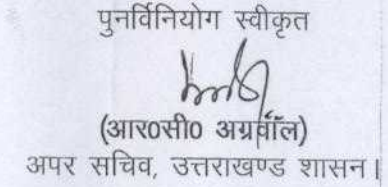 पुनर्विनियोग स्वीकृत
(आर०सी० अग्रवॉल)
अपर सचिव, उत्तराखण्ड शासन।